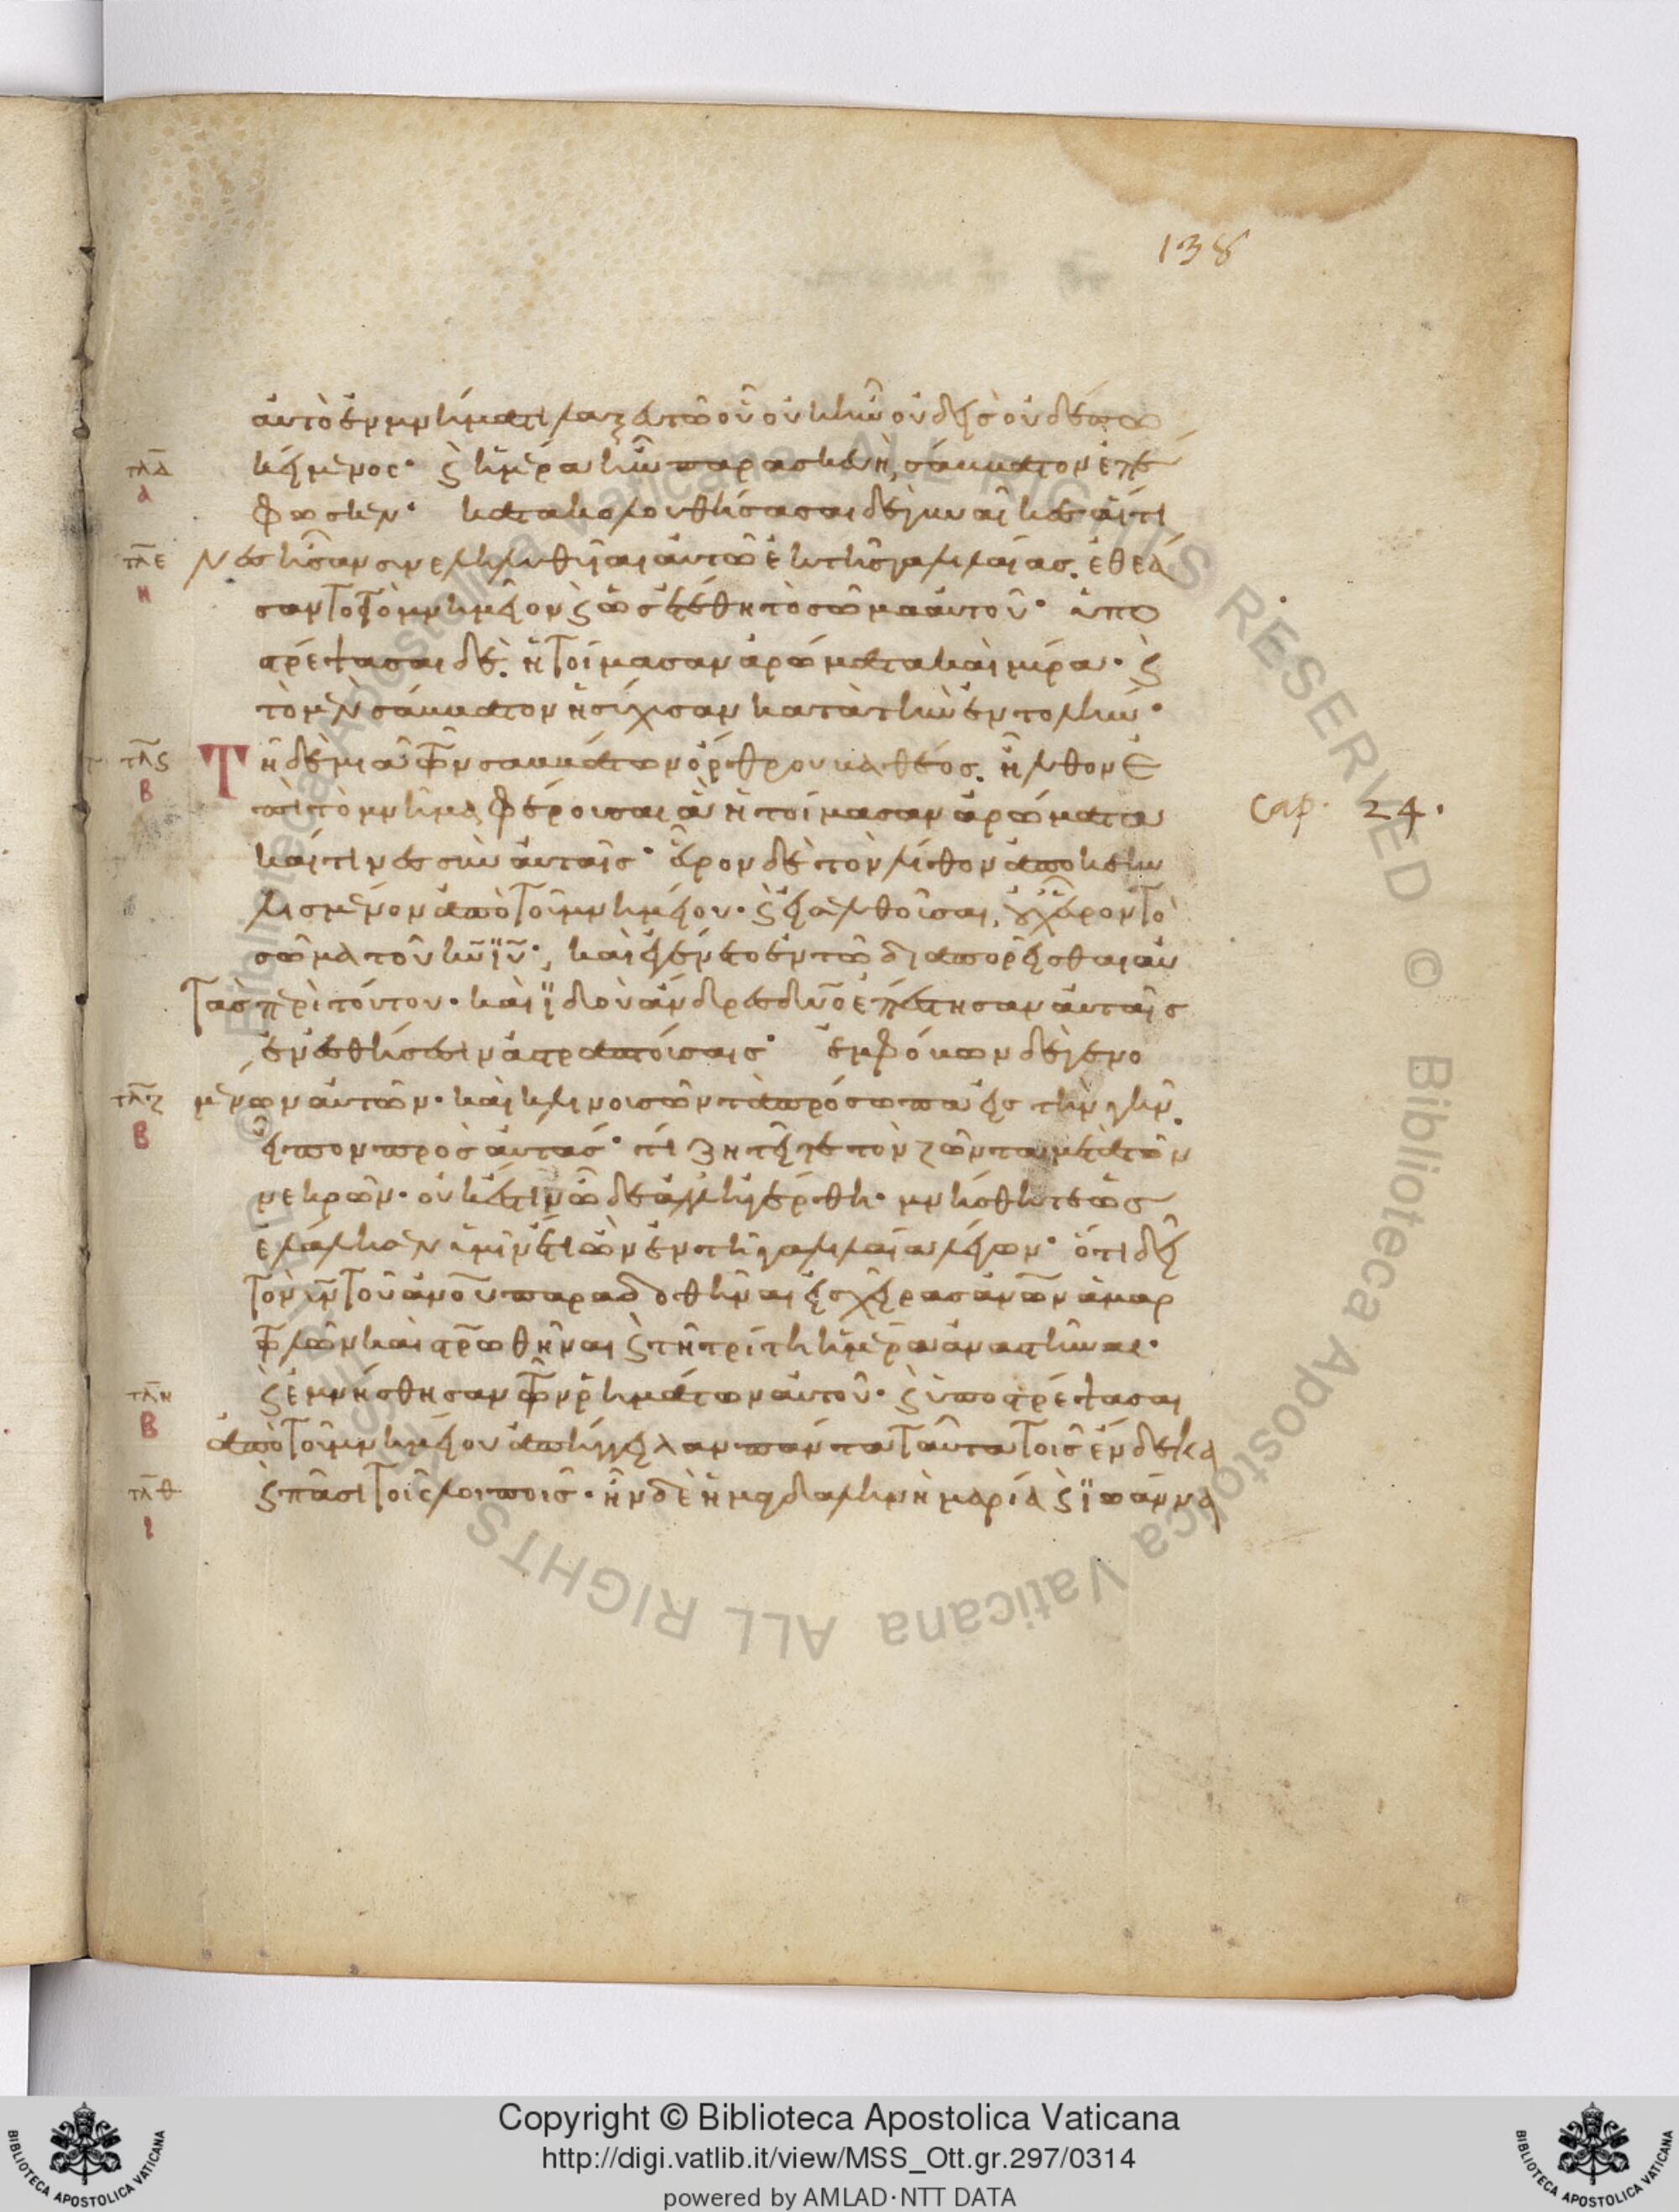 138
αυτὸ ἐν μνήματι λαξευτῶ οὗ οὐκ ἦν οὐδεὶς οὐδέπω
τλδ κείμενος· ϗ ἡμέρα ἦν παρασκευὴ, σάββατον ἐπέ
α
φωσκεν· κατακολουθήσασαι δὲ γυναῖκες αἵτι
τλε νες ἦσαν συνεληλυθῆαι αὐτῶ ἐκ τῆς γαλιλαίας. ἐθεά
η
σαντο τὸ μνημεῖον ϗ ὡς ἐτέθη τὸ σῶμα αὐτοῦ· ὑπο
στρέψασαι δὲ. ἡτοίμασαν ἀρώματα καὶ μύρα· ϗ
τὸ μὲν σάββατον ἡσύχασαν κατὰ τὴν ἐντολήν·
τλς Τῆ δὲ μιᾶ τῶν σαββάτων ὄρθρου βαθέος. ἦλθον ἐ
β
πὶ τὸ μνῆμα φέρουσαι ἃ ἡτοίμασαν ἀρώματα
cap. 24.
καί τινες σὺν αὐταῖς· εὗρον δὲ τὸν λίθον ἀποκεκυ
λισμένον ἀπὸ τοῦ μνημείου· ϗ εἰσελθοῦσαι, οὐχ εὗρον τὸ
σῶμα τοῦ κ̅υ̅ ι̅υ̅· καὶ ἐγένετο ἐν τῶ διαπορεῖσθαι αὐ
τὰς περὶ τούτου· καὶ ἰδοὺ ἄνδρες δύο ἐπέστησαν αὐταῖς
ἐν ἐσθήσεσιν ἀστραπτούσαις· ἐμφόβων δὲ γενο
τλζ μένων αὐτῶν· καὶ κλινουσῶν τὰ πρόσωπα εἰς τὴν γῆν.
β
εἶπον πρὸς αὐτάς· τί ζητεῖτε τὸν ζῶντα μετὰ τῶν
νεκρῶν· οὐκ ἔστιν ὧδε ἀλλ' ἠγέρθη· μνήσθητε ὡς
ἐλάλησεν ὑμῖν ἔτι ὢν ἐν τῆ γαλιλαία λέγων· ὅτι δεῖ
τὸν υ̅ν̅ τοῦ α̅ν̅ο̅υ̅ παραδοθῆναι εἰς χεῖρας α̅ν̅ω̅ν̅ ἁμαρ
τωλῶν καὶ σ̅ρ̅ωθῆναι ϗ τῆ τρίτη ἡμέρα ἀναστῆναι·
τλη ϗ ἐμνήσθησαν τῶν ῥημάτων αὐτοῦ· ϗ ὑποστρέψασαι
β
ἀπὸ τοῦ μνημείου ἀπήγγειλαν πάντα ταῦτα τοῖς ἕνδεκα
τλθ ϗ πᾶσι τοῖς λοιποῖς· ἦν δὲ ἡ μαγδαληνὴ μαρία ϗ ϊωάννα
ι
Copyright © Biblioteca Apostolica Vaticana
http://digi.vatlib.it/view/MSS_Ott.gr.297/0314
powered by AMLAD·NTT DATA